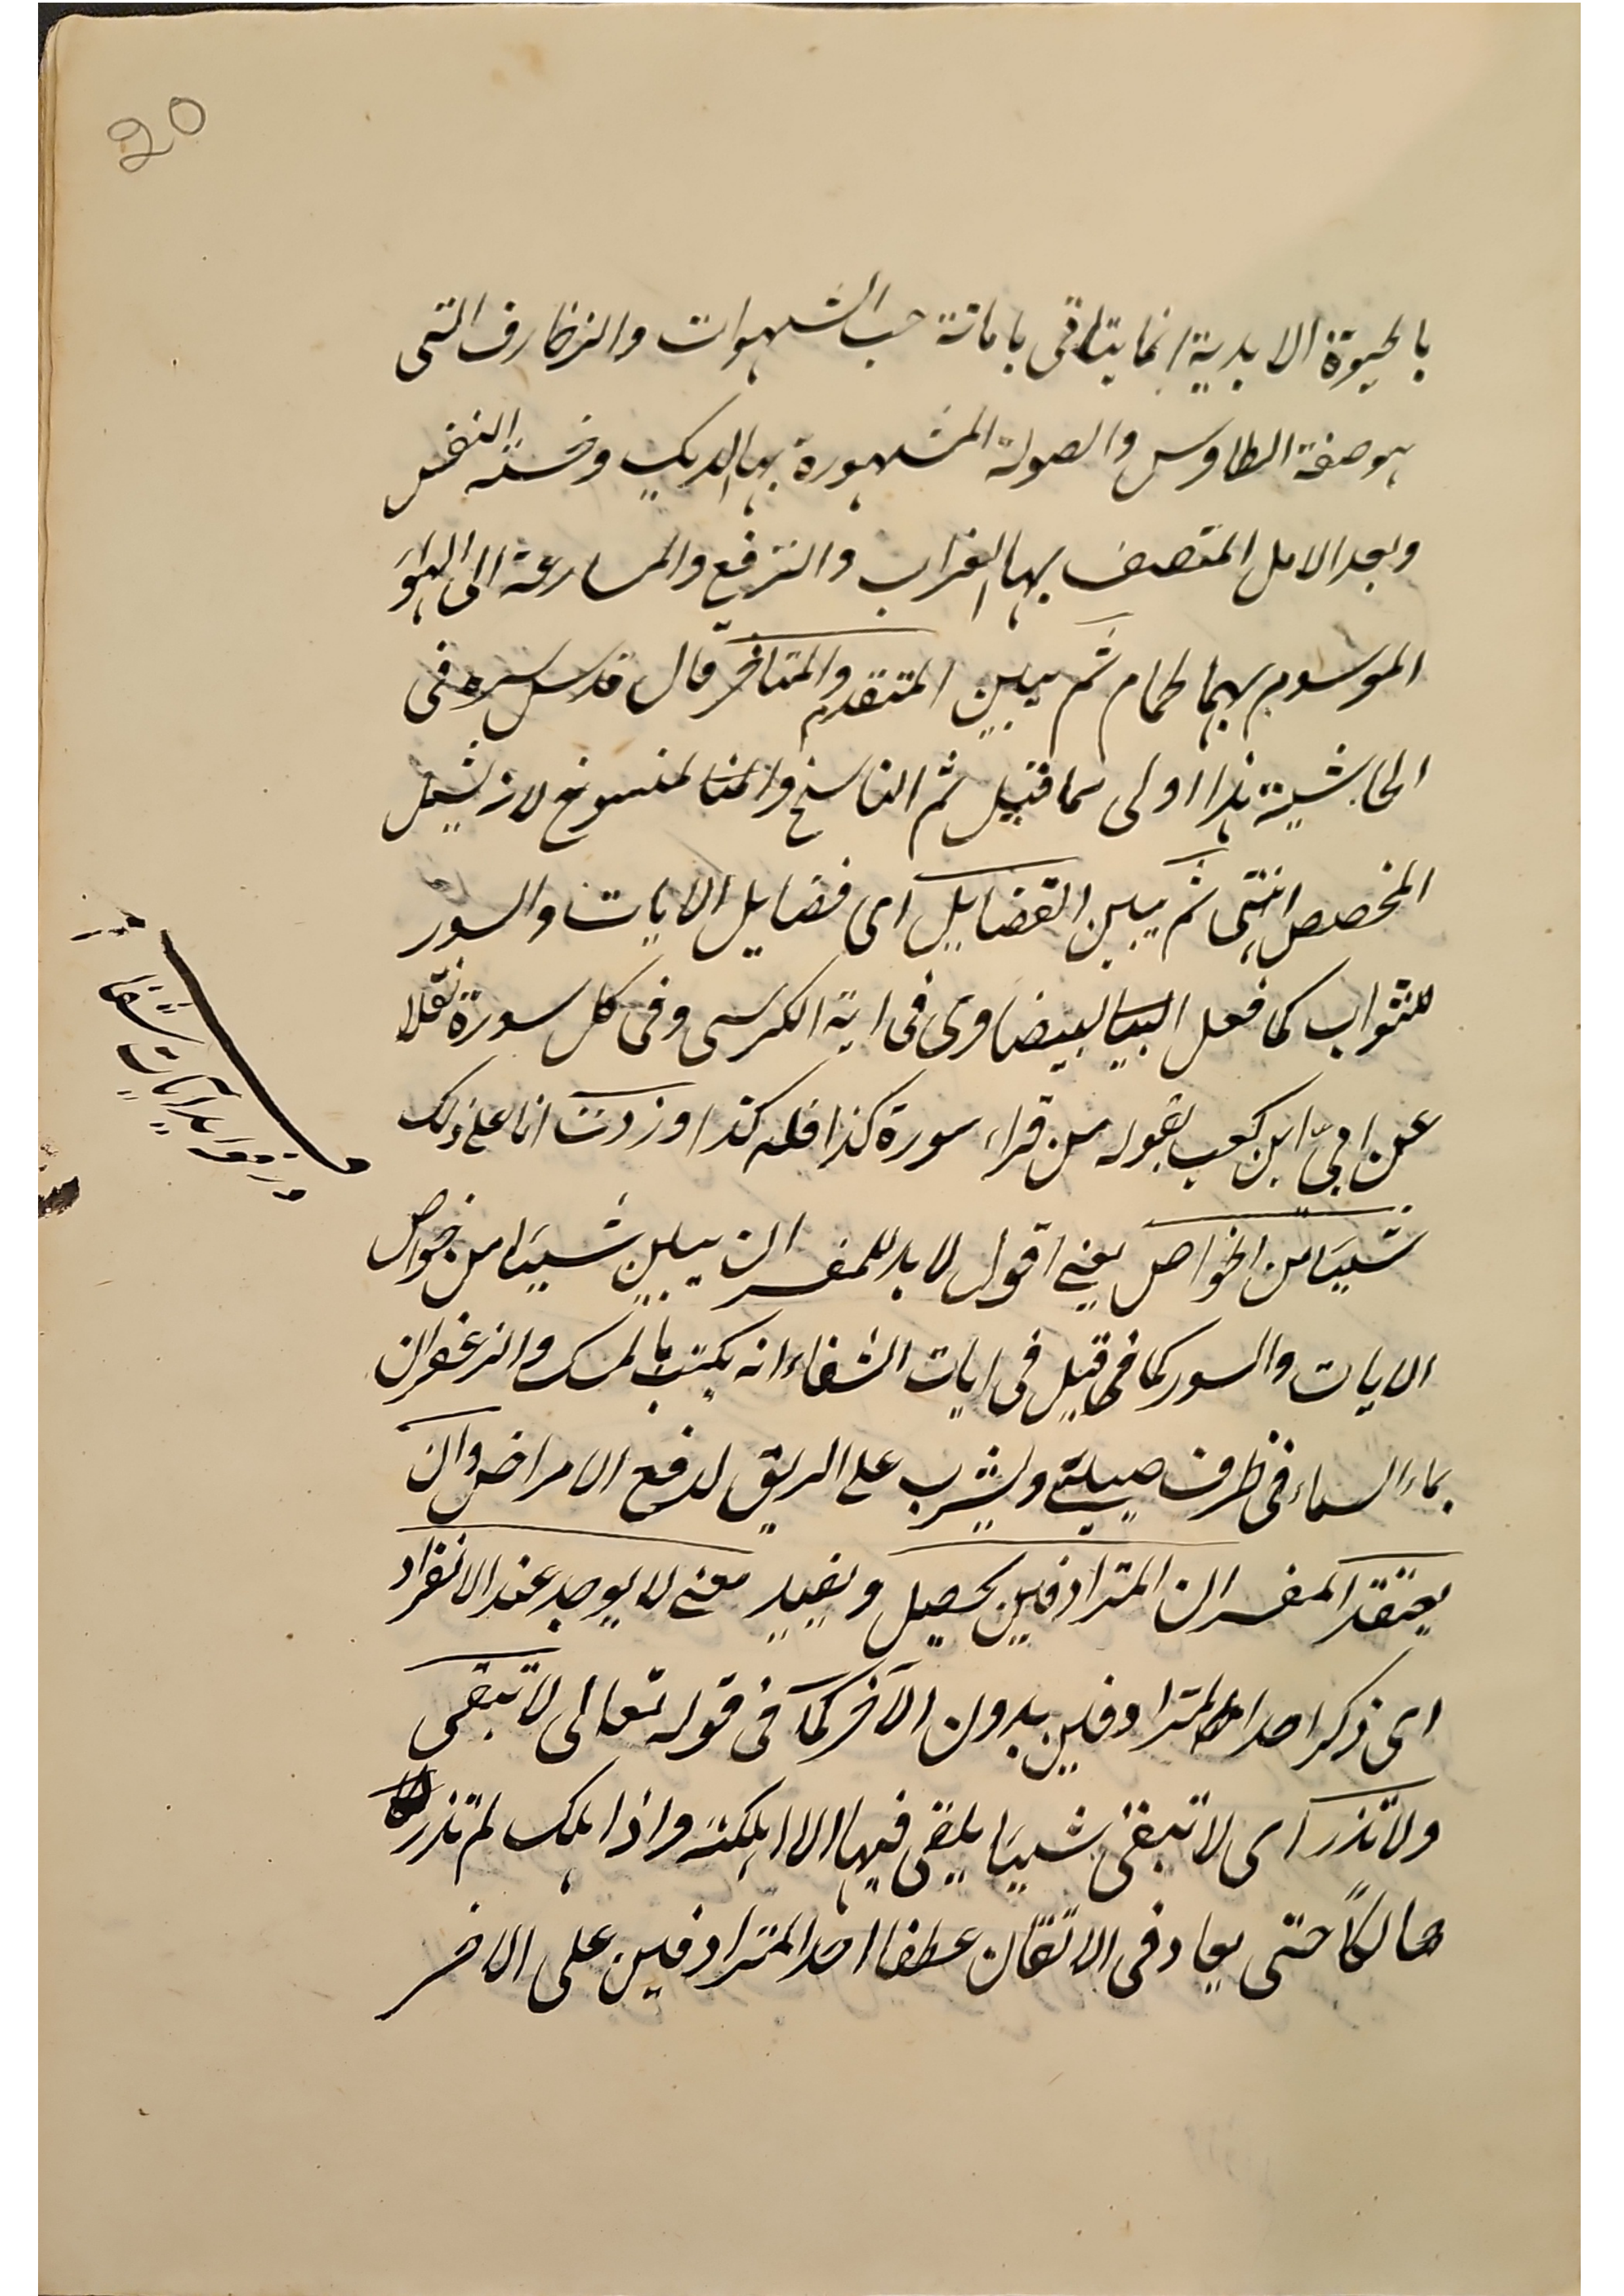 20
بالحيوة الابدية انما يتاتى باماتة حب الشهوات والزخارف التى
هو صفة الطاوس والصولة المشهورة بها الديك وخسة النفس
وبعد الامل المتصف بها الغراب والترفع والمسارعة الى الهوىَ
الموسوم بهما الحمام ثم يبين المتقدم والمتاخر قال قدس سره فى
الحاشية هذا اولى مما قيل ثم الناسخ والمنسوخ لانه يشمل
المخصص انتهى ثم يبين الفضايل اى فضايل الايات والسور
للثواب كما فعل البيضاوى فى اية الكرسى وفى كل سورة نقلا
عن ابىّ ابن كعب بقوله من قراء سورة كذا فله كذا وزدت انا على ذلك
شيئا من الخواص يعنى اقول لابد للمفسر ان يبين شيئا من خواص
الايات والسور كما فى قيل فى ايات الشفاء انه يكتب بالمسك والزعفران
بماء السماء فى ظرف صينى ويشرب على الريق لدفع الامراض وان
يعتقد المفسر ان المترادفين يحصل ويفيد معنى لا يوجد عند الانفراد
اى ذكر احد المترادفين بدون الآخر كما فى قوله تعالى لا تبقى
ولا تذر اى لا تبقى شيئا يلقى فيها الا اهلكته واذا هلك لم تذره
هالكاً حتى يعاد فى الاتقان عطفا احد المترادفين على الاخر
فوايد آيات شفا